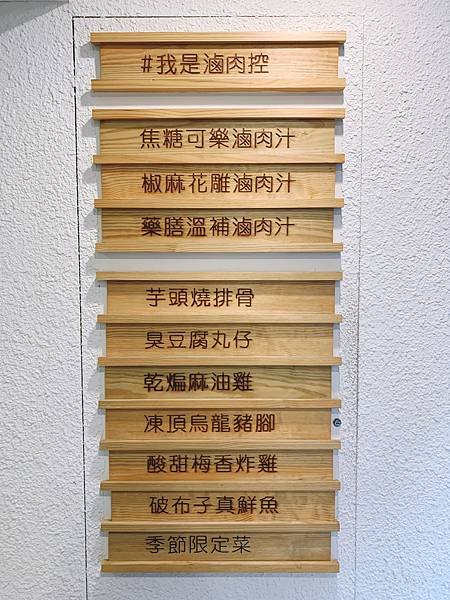 #我是滷肉控
焦糖可樂滷肉汁
椒麻花雕滷肉汁
藥膳溫補滷肉汁
芋頭燒排骨
臭豆腐丸仔
乾煸麻油雞
凍頂烏龍豬腳
酸甜梅香炸雞
破布子真鮮魚
季節限定菜